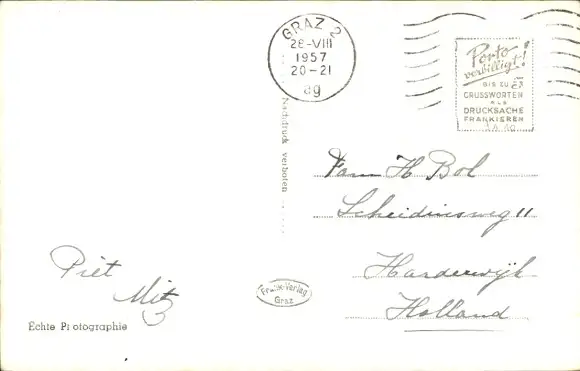 GRAZ 2
26-VIII
1957
20-21
ag
Porto
verbilligt!
BIS ZU
GRUSSWORTEN
ALS
DRUCKSACHE
FRANKIEREN
Nachdruck verboten
Fam H Bol
Scheidinsweg 11
Harderwijk
Holland
Piet
Mitz
Frank-Verlag
Graz
Echte Photographie